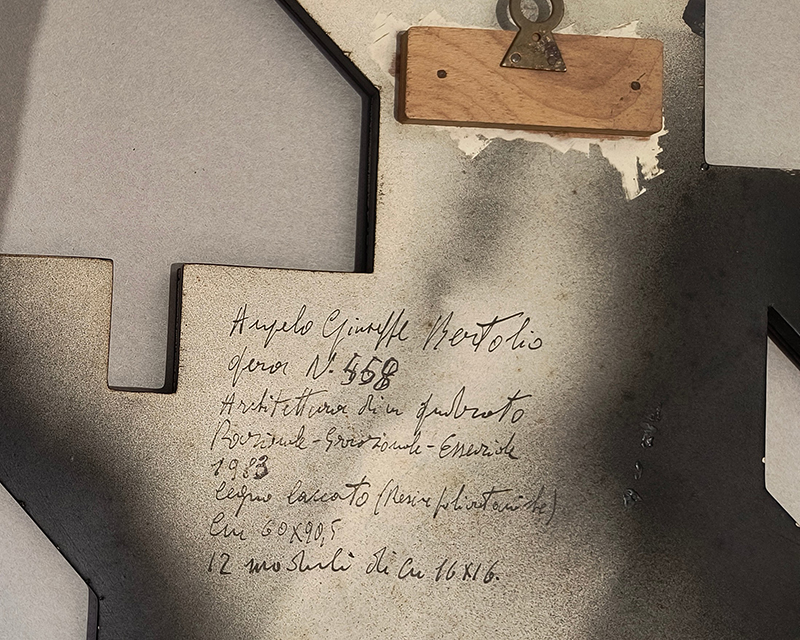 Angelo Giuseppe Bertolio
opera N. 558
Architettura di un quadrato
Razionale-Gravzionale-Essenziale
1983
legno laccato (Resine poliuretaniche)
Cm 60x90,5
12 moduli di cm 16x16.